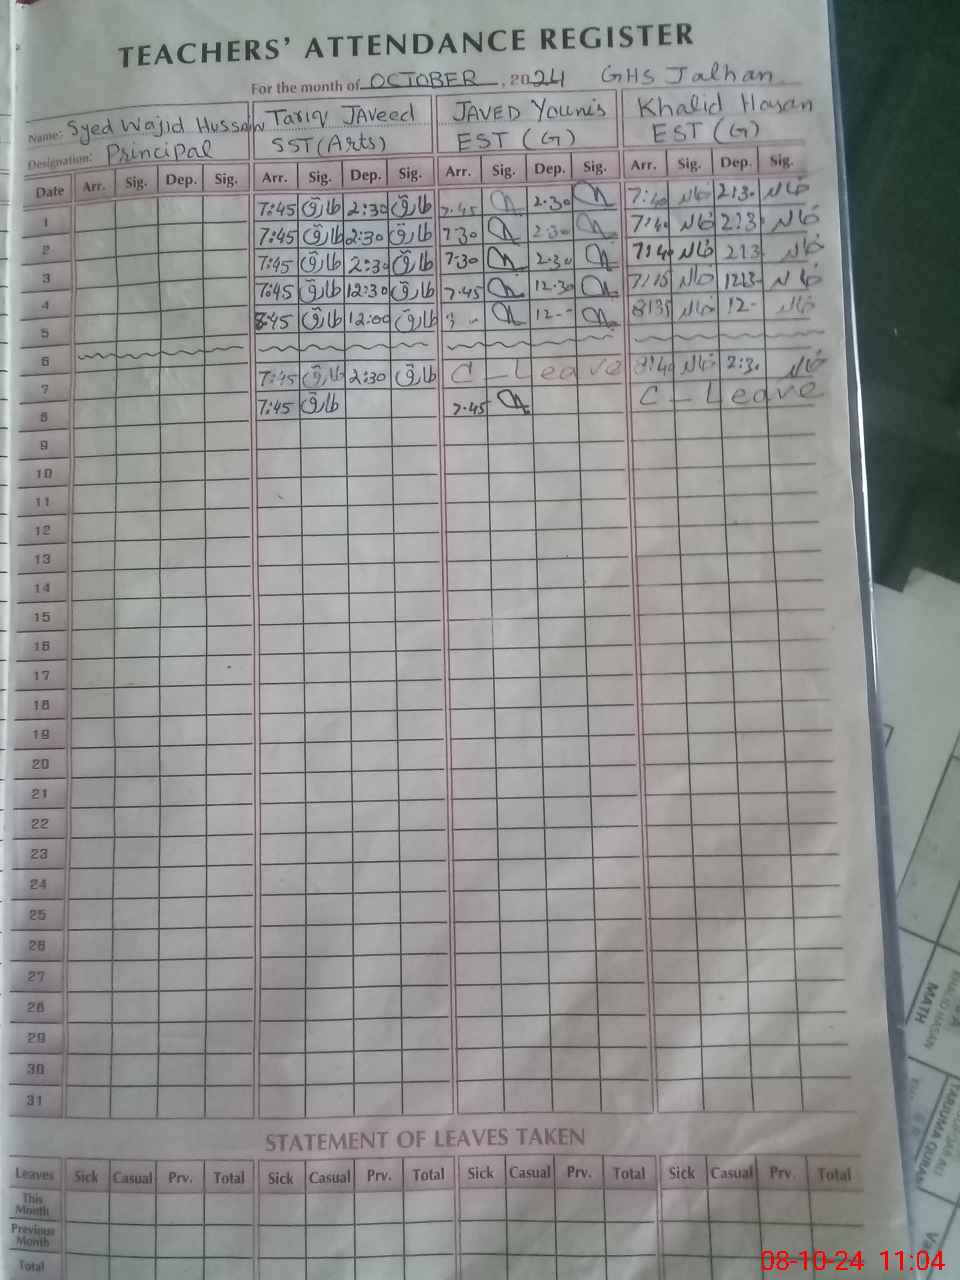 TEACHERS' ATTENDANCE REGISTER
For the month of OCTOBER, 2024 GHS Jalhan
Name: Syed Wajid Hussain Tariq JAveed JAVED Younis Khalid Hasan
Designation: Principal SST (Arts) EST (G) EST (G)
Date Arr. Sig. Dep. Sig. Arr. Sig. Dep. Sig. Arr. Sig. Dep. Sig. Arr. Sig. Dep. Sig.
1 7:45 طارق 2:30 طارق 7.45 2.30 7:40 خالد 2:30 خالد
2 7:45 طارق 2:30 طارق 7.30 2.30 7:40 خالد 2:30 خالد
3 7:45 طارق 2:30 طارق 7.30 2.30 7:40 خالد 2:30 خالد
4 7:45 طارق 12:30 طارق 7.45 12.30 خالد خالد
5 8:45 طارق 12:00 طارق 12-- 8:35 خالد 12- خالد
6
7 7:45 طارق 2:30 طارق C - Leave خالد 2:30 خالد
8 7:45 طارق 7.45 C - Leave
9
10
11
12
13
14
15
16
17
18
19
20
21
22
23
24
25
26
27
28
29
30
31
STATEMENT OF LEAVES TAKEN
Leaves Sick Casual Prv. Total Sick Casual Prv. Total Sick Casual Prv. Total Sick Casual Prv. Total
This Month
Previous Month
Total
KHALID HASAN
MATH
TARJUMA QURAN
08-10-24 11:04